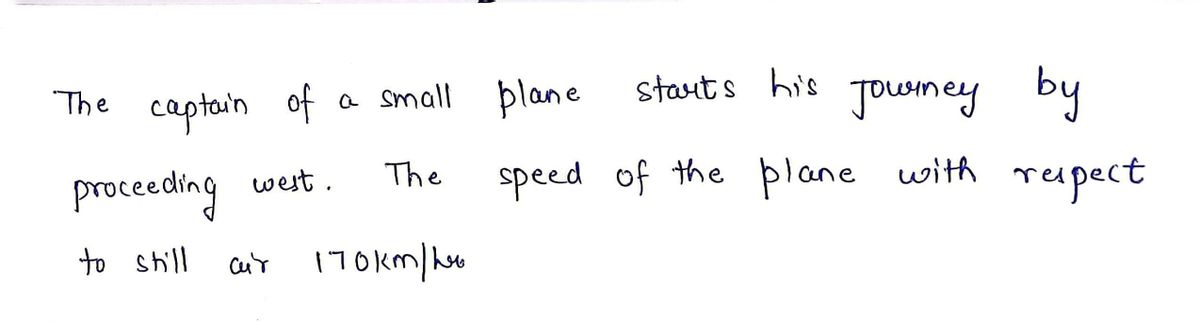 The captain of a small plane starts his journey by
proceeding west. The speed of the plane with respect
to still air 170km/hr